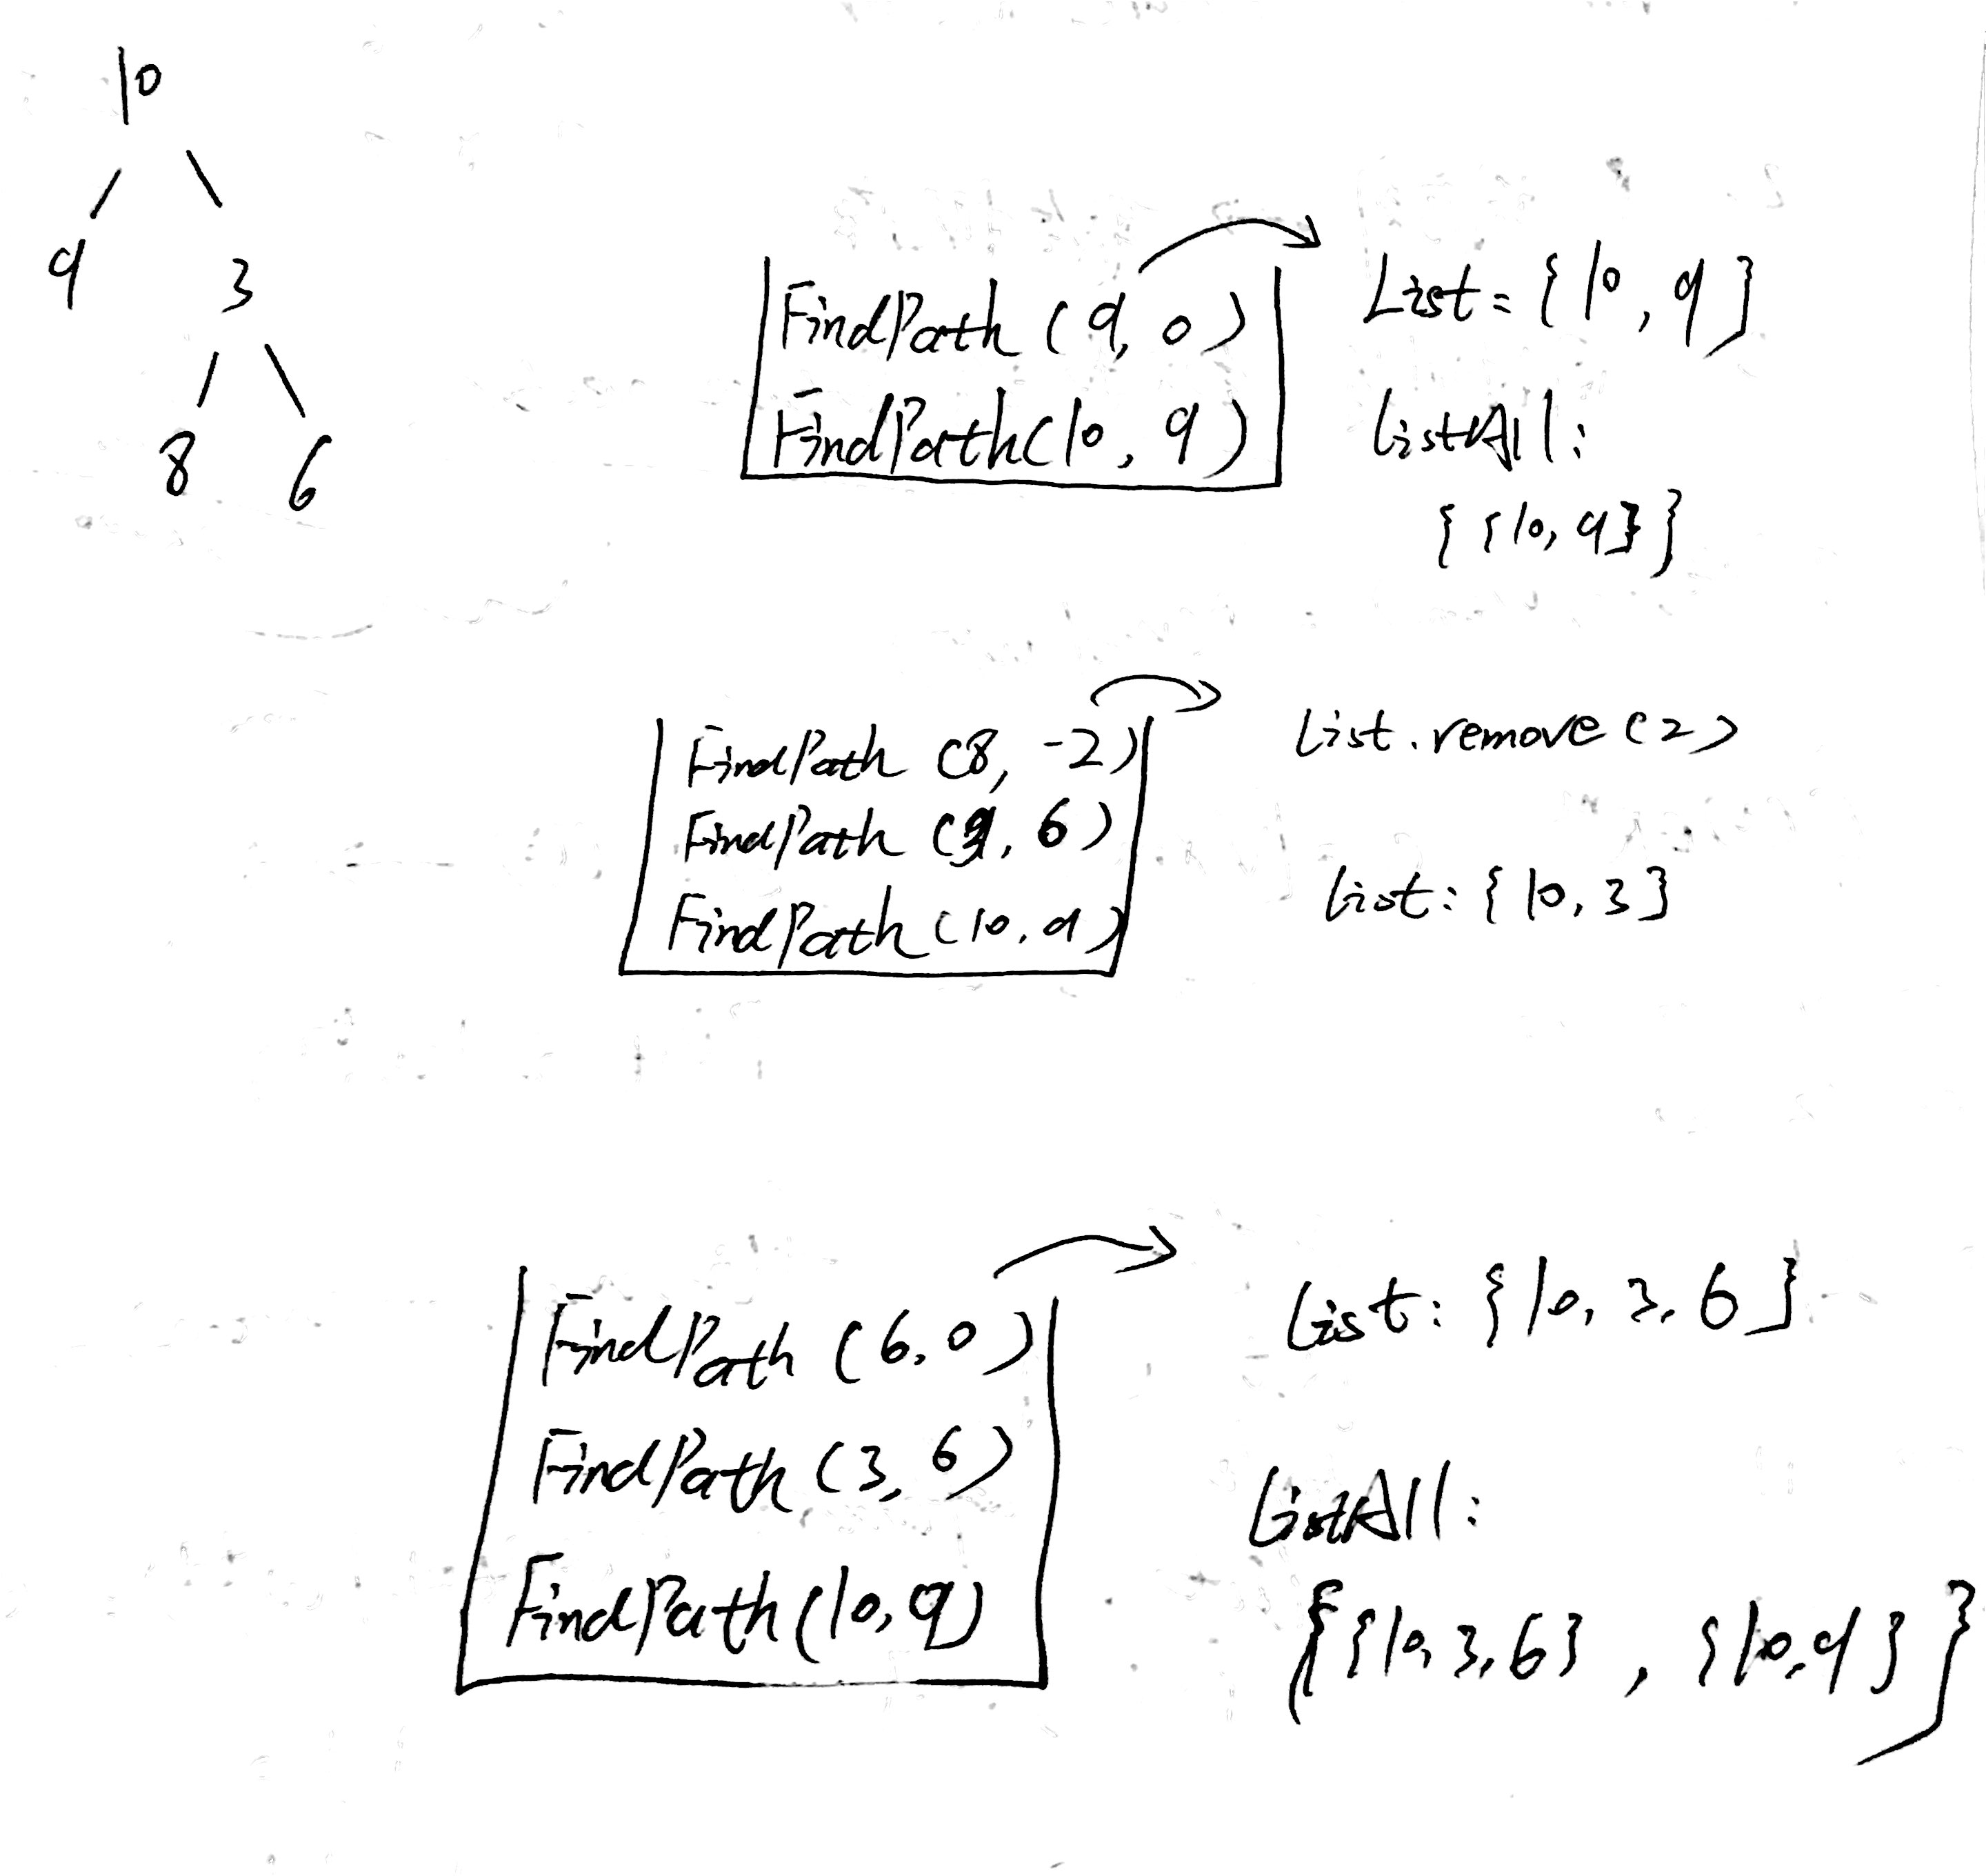 10
9 3
8 6
FindPath (9, 0)
FindPath(10, 9)
List = {10, 9}
ListAll:
{ {10, 9} }
FindPath (8, -2)
FindPath (3, 6)
FindPath (10, 9)
List.remove(2)
List: {10, 3}
FindPath (6, 0)
FindPath (3, 6)
FindPath (10, 9)
List: {10, 3, 6}
ListAll:
{{10, 3, 6} , {10, 9}}